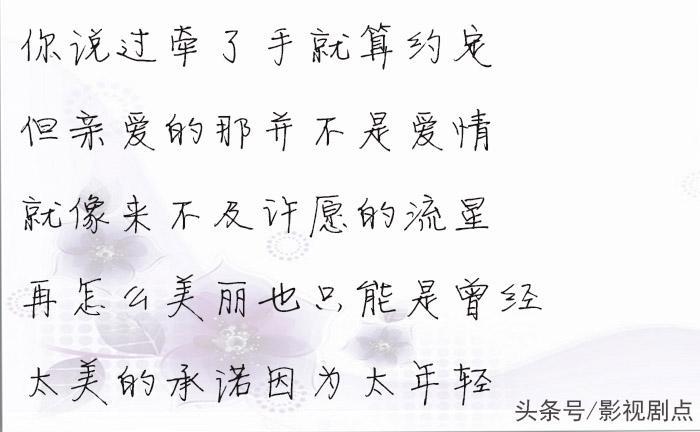 你说过牵了手就算约定
但亲爱的那并不是爱情
就像来不及许愿的流星
再怎么美丽也只能是曾经
太美的承诺因为太年轻
头条号/影视剧点